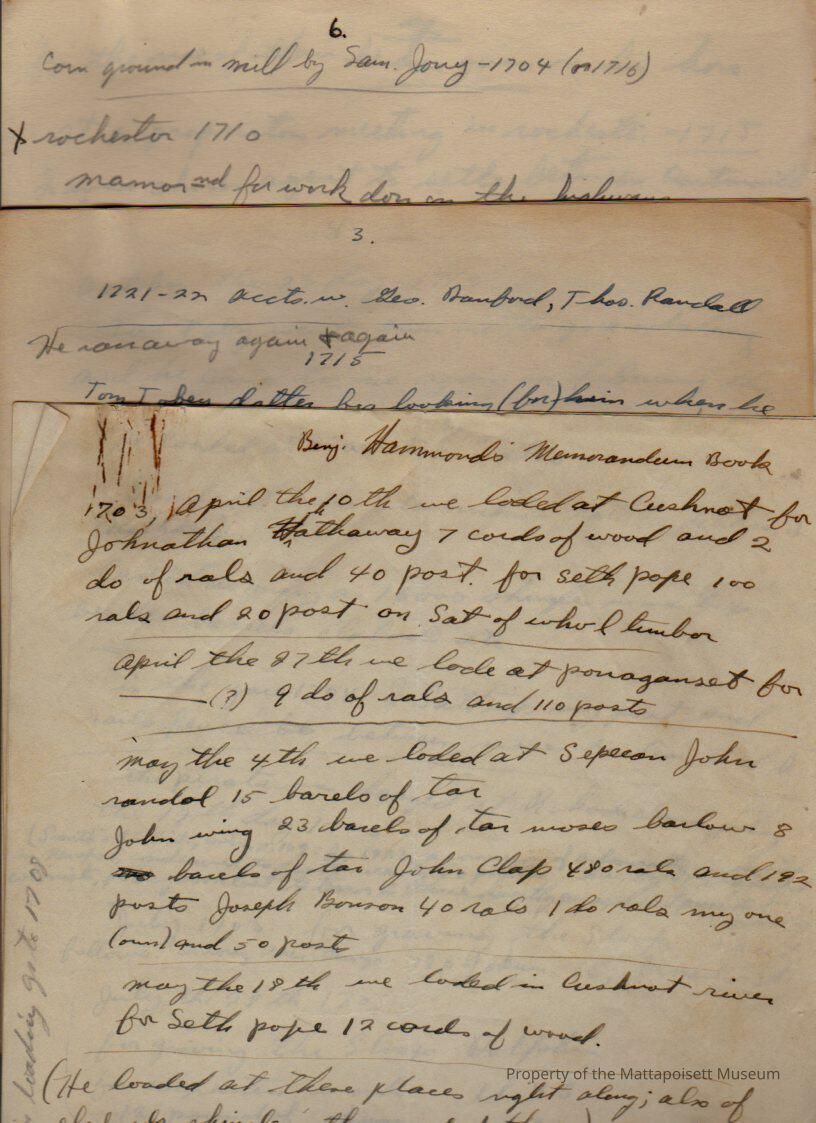 6.
Corn ground in mill by Sam. Jouy - 1704 (or 1716)
X rochester 1710
mamornd for work don on the highways
3.
1721-22 accts. w. Geo. Danford, Thos. Randall
He ran away again & again
1715
Tom Tobey datter has looking (for) him when he
Benj. Hammond's Memorandum Book
1703, April the 10th we loded at Cushnot for
Johnathan Hathaway 7 cords of wood and 2
do of rals and 40 post. for seth pope 100
rals and 20 post on Sat of whol timbor
April the 27th we lode at ponaganset for
(?) 9 do of rals and 110 posts
may the 4th we loded at Sepecan John
randol 15 barels of tar
John wing 23 barels of tar moses barlow 8
barels of tar John Clap 480 rals and 192
posts Joseph Bonson 40 rals 1 do rals my one
(own) and 50 posts
may the 18th we loded in Cushnot river
for Seth pope 12 cords of wood.
(He loaded at these places right along; also of
loading go to 1708
Property of the Mattapoisett Museum